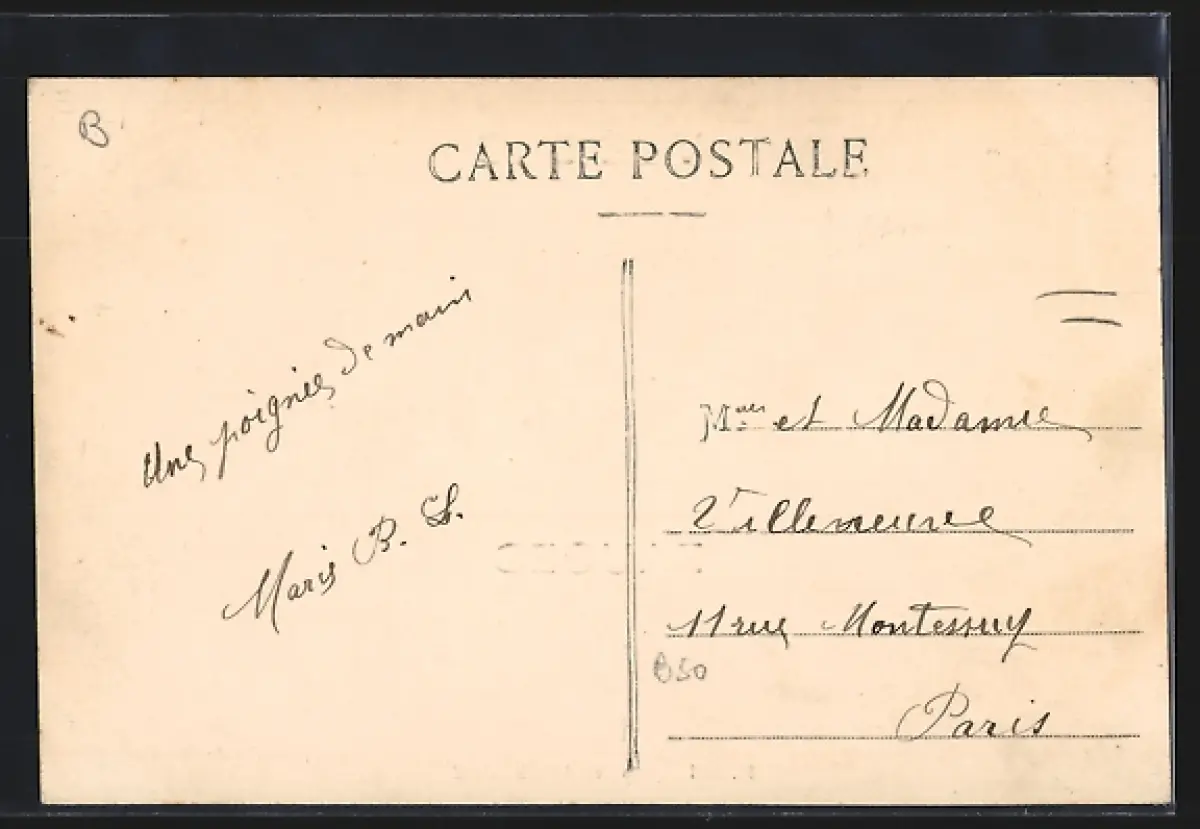 B
CARTE POSTALE
Une poignée de main
Marie B. S.
et Madame
Villeneuve
11 rue Montessuy
B50
Paris